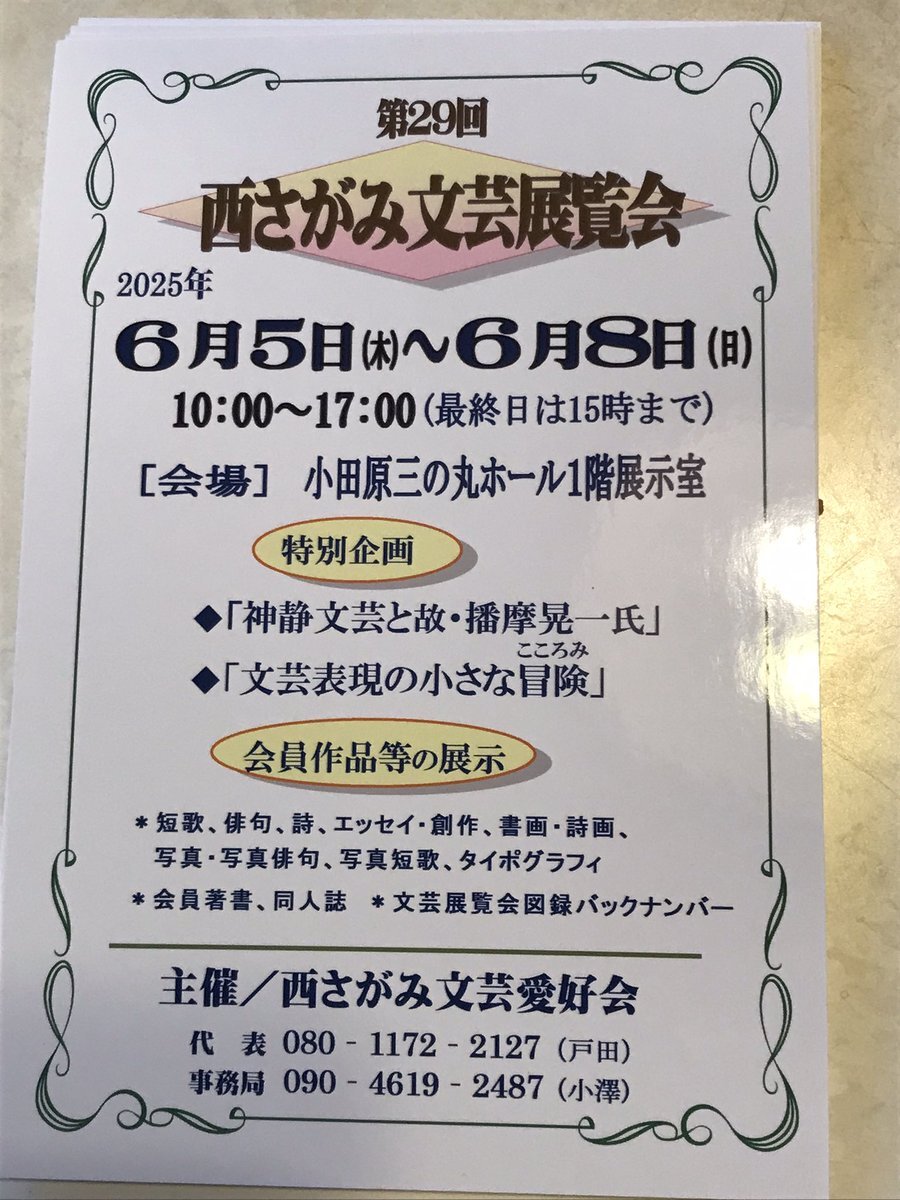 第29回
西さがみ文芸展覧会
2025年
6月5日(木)～6月8日(日)
10:00～17:00(最終日は15時まで)
［会場］ 小田原三の丸ホール1階展示室
特別企画
◆「神静文芸と故・播摩晃一氏」
こころみ
◆「文芸表現の小さな冒険」
会員作品等の展示
＊短歌、俳句、詩、エッセイ・創作、書画・詩画、
写真・写真俳句、写真短歌、タイポグラフィ
＊会員著書、同人誌 ＊文芸展覧会図録バックナンバー
主催／西さがみ文芸愛好会
代 表 080‐1172‐2127（戸田）
事務局 090‐4619‐2487（小澤）